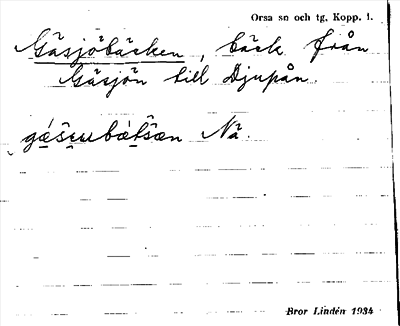 Orsa sn och tg. Kopp. l.
Gäsjöbäcken, bäck från
Gäsjön till Djupån.
Nä.
Bror Lindén 1934